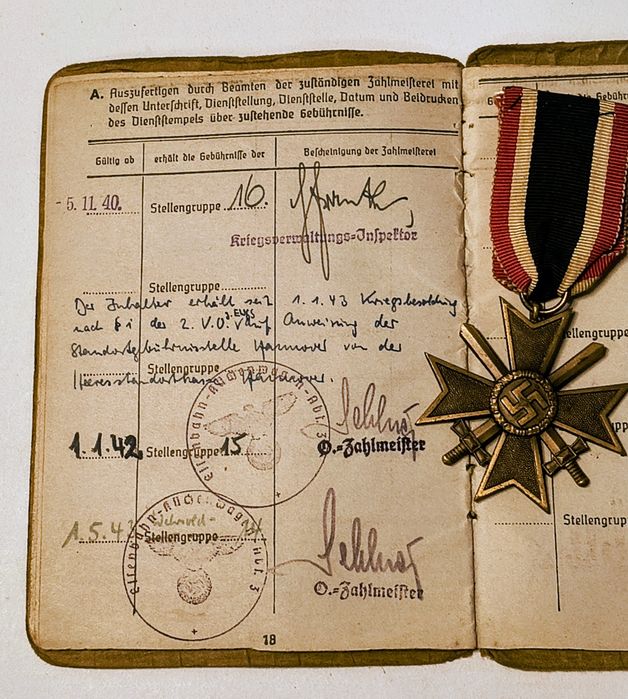 A. Auszufertigen durch Beamten der zuständigen Zahlmeisterei mit
dessen Unterschrift, Dienststellung, Dienststelle, Datum und Beidrucken
des Dienststempels über zustehende Gebührnisse.
Gültig ab erhält die Gebührnisse der Bescheinigung der Zahlmeisterei
5. 11. 40. Stellengruppe 16.
Kriegsverwaltungs-Inspektor
Stellengruppe
Der Inhaber erhält seit 1.1.43 Kriegsbesoldung
nach § 1 der 2. V.O. z. EWGG auf Anweisung der
Standortgebührnisstelle Hannover von der
Stellengruppe
Heeresstandortkasse Hannover.
Eisenbahn-Küchenwagen-Abt. 3
1.1.42 Stellengruppe 15
O.-Zahlmeister
1.5.4 Wehrsold-
Stellengruppe 14
Eisenbahn-Küchenwagen-Abt. 3
O.-Zahlmeister
18
Stellengruppe
Stellengruppe
Stellengrupp